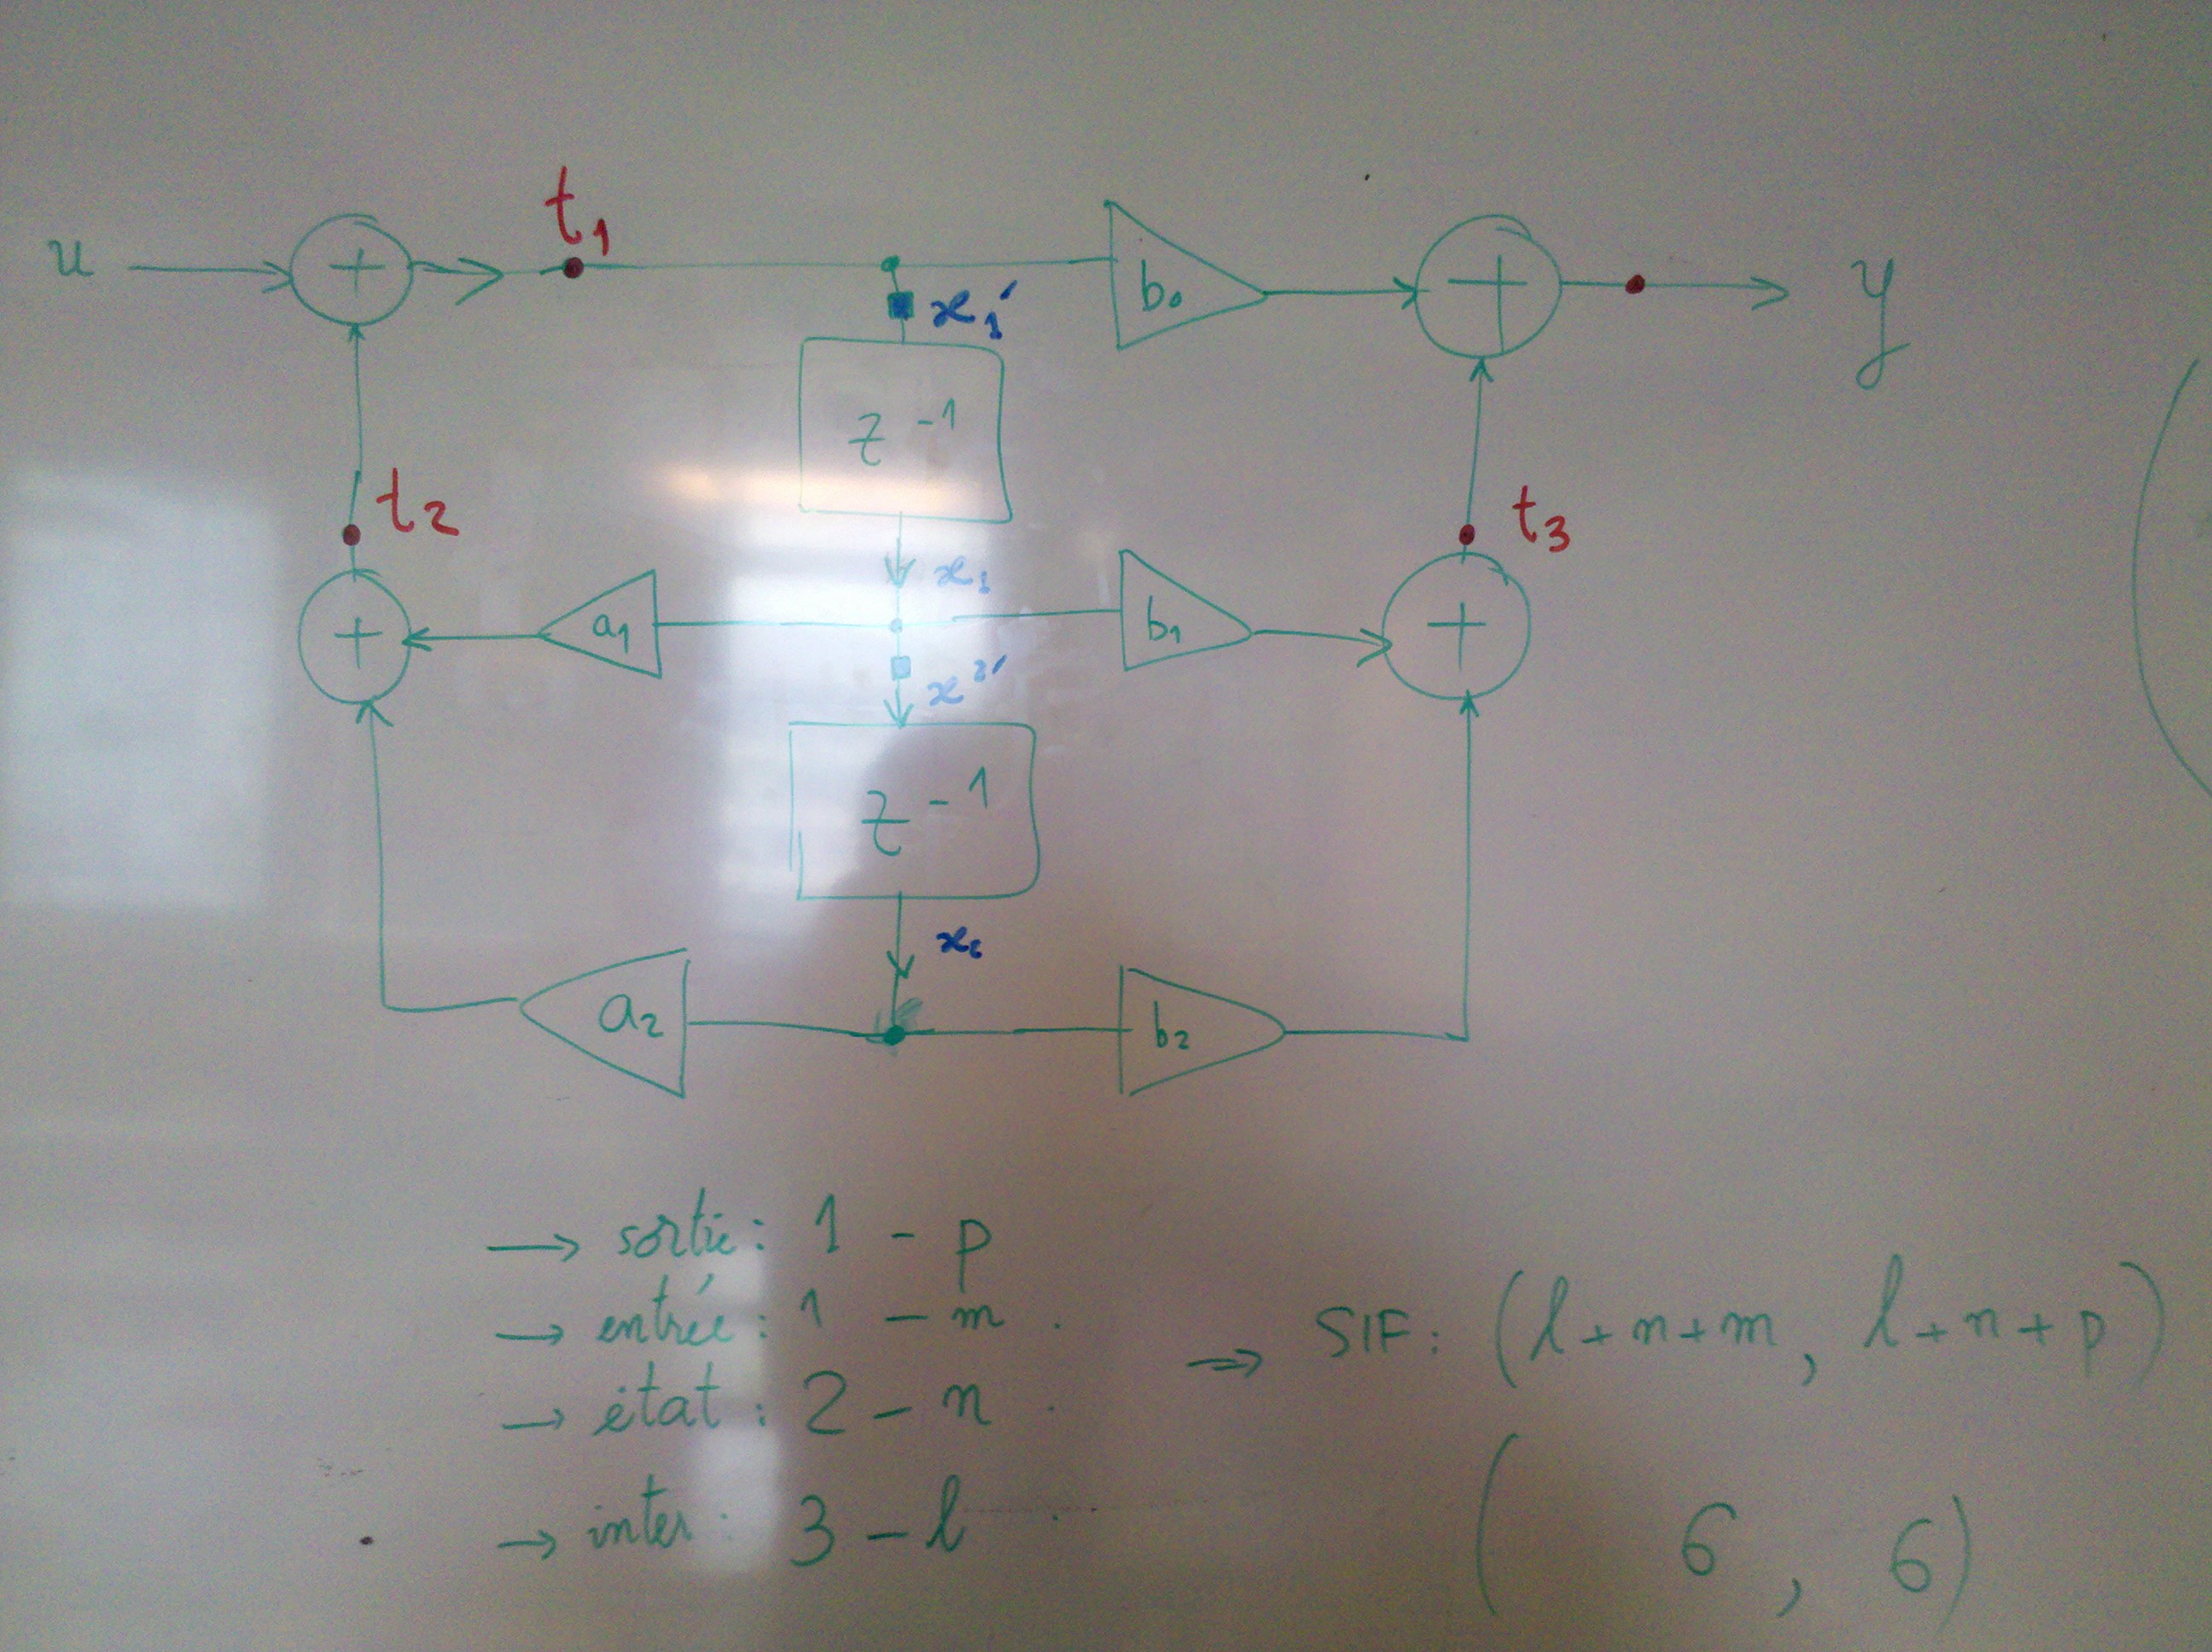 u
+
t1
x1'
b0
+
y
z^-1
t2
t3
x1
+
a1
b1
+
x2'
z^-1
x2
a2
b2
→ sortie : 1 - p
→ entrée : 1 - m
→ état : 2 - n
→ inter : 3 - l
⇒ SIF : (l+n+m, l+n+p)
( 6 , 6)